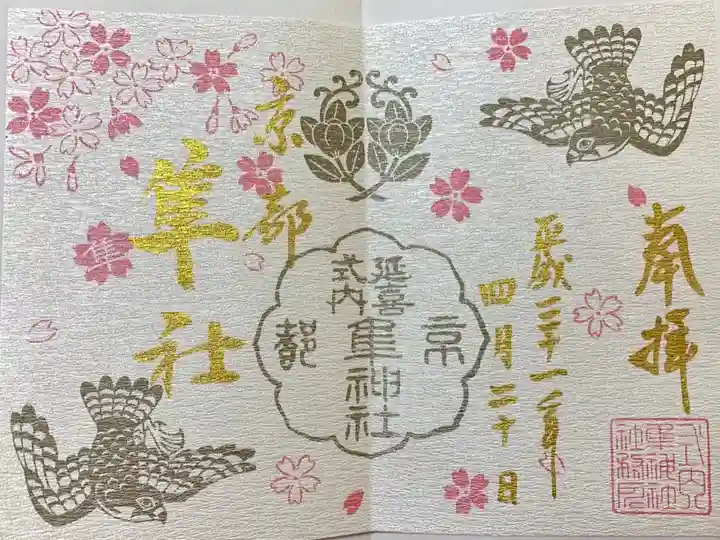 奉拝
平成三十一年
四月二十日
京都
延喜
式内
隼神社
京都
隼社
隼
式内
隼神社
社務所